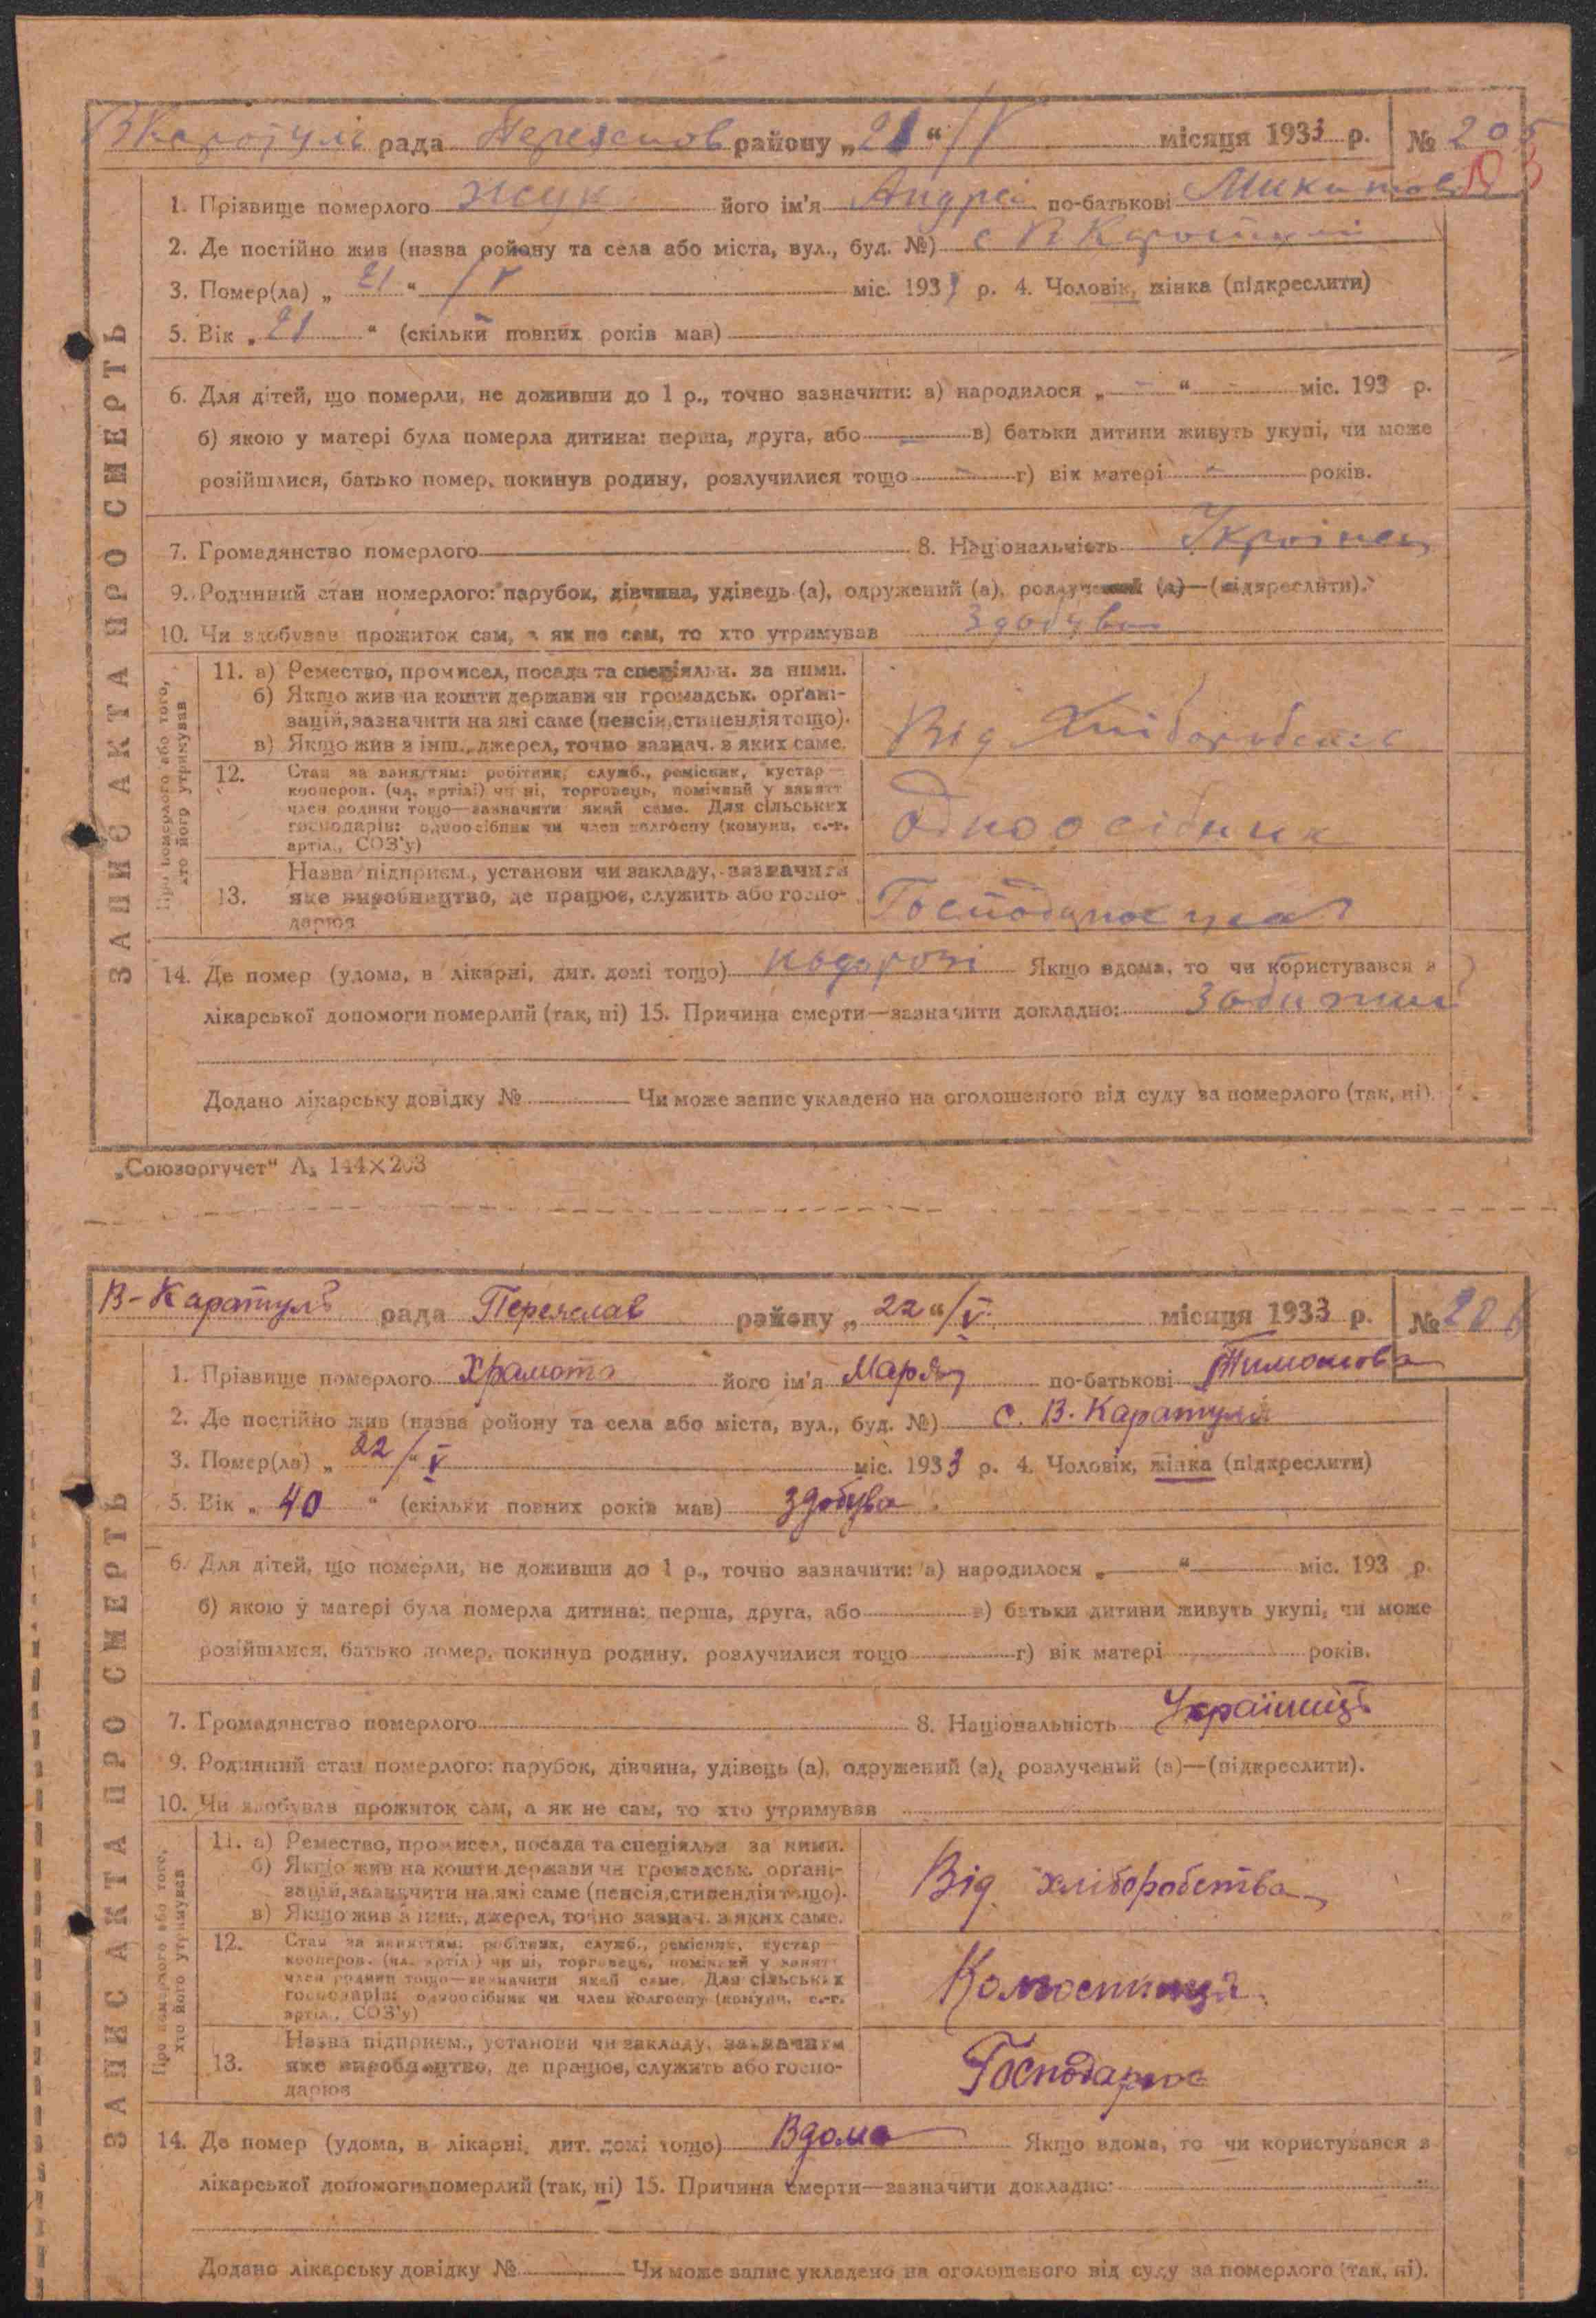 В Каратулі рада Переяслов району „21“/V місяця 1933 р. № 205
1. Прізвище померлого Жук його ім'я Андрій по-батькові Микитов
2. Де постійно жив (назва ройону та села або міста, вул., буд. №) с В Каратулі
3. Помер(ла) „21“/V міс. 1933 р. 4. Чоловік, жінка (підкреслити)
5. Вік „21“ (скільки повних років мав)
6. Для дітей, що померли, не доживши до 1 р., точно зазначити: а) народилося „-“ - міс. 193 р.
б) якою у матері була померла дитина: перша, друга, або - в) батьки дитини живуть укупі, чи може
розійшлися, батько помер, покинув родину, розлучилися тощо - г) вік матері - років.
7. Громадянство померлого 8. Національність Украінец
9. Родинний стан померлого: парубок, дівчина, удівець (а), одружений (а), розлучений (а)—(підкреслити).
10. Чи здобував прожиток сам, а як не сам, то хто утримував Здобував
ЗАПИС АКТА ПРО СМЕРТЬ
Про померлого або того, хто його утримував
11. а) Ремество, промисел, посада та спеціяльн. за ними.
б) Якщо жив на кошти держави чи громадськ. органі-
зацій, зазначити на які саме (пенсія, стипендія тощо).
в) Якщо жив з інш., джерел, точно зазнач. з яких саме.
Від Хліборобства
12. Стан за заняттям: робітник, служб., ремісник, кустар
кооперов. (чл. артілі) чи ні, торговець, помічний у занятт
член родини тощо—зазначити який саме. Для сільських
господарів: одноосібник чи член колгоспу (комуни, с.-г.
артіл., СОЗ'у)
Одноосібник
13. Назва підприєм., установи чи закладу, зазначити
яке виробництво, де працює, служить або госпо-
дарює
14. Де помер (удома, в лікарні, дит. домі тощо) Надорозі Якщо вдома, то чи користувався з
лікарської допомоги померлий (так, ні) 15. Причина смерти—зазначити докладно:
Додано лікарську довідку № Чи може запис укладено на оголошеного від суду за померлого (так, ні).
„Союзоргучет“ А₅ 144×203
В-Каратуль рада Переяслав району „22“/V місяця 1933 р. № 206
1. Прізвище померлого Храмота його ім'я Марія по-батькові Тимошова
2. Де постійно жив (назва ройону та села або міста, вул., буд. №) с. В. Каратулі
3. Помер(ла) „22“/V міс. 1933 р. 4. Чоловік, жінка (підкреслити)
5. Вік „40“ (скільки повних років мав) здобува
6. Для дітей, що померли, не доживши до 1 р., точно зазначити: а) народилося „ “ міс. 193 р.
б) якою у матері була померла дитина: перша, друга, або в) батьки дитини живуть укупі, чи може
розійшлися, батько помер, покинув родину, розлучилися тощо г) вік матері років.
7. Громадянство померлого 8. Національність
9. Родинний стан померлого: парубок, дівчина, удівець (а), одружений (а), розлучений (а)—(підкреслити).
10. Чи здобував прожиток сам, а як не сам, то хто утримував
ЗАПИС АКТА ПРО СМЕРТЬ
Про померлого або того, хто його утримував
11. а) Ремество, промисел, посада та спеціяльн за ними.
б) Якщо жив на кошти держави чи громадськ. органі-
зацій, зазначити на які саме (пенсія, стипендія тощо).
в) Якщо жив з інш., джерел, точно зазнач. з яких саме.
Від хліборобства
12. Стан за заняттям: робітник, служб., ремісник, кустар
кооперов. (чл. артіл.) чи ні, торговець, помічний у занятт
член родини тощо—зазначити який саме. Для сільських
господарів: одноосібник чи член колгоспу (комуни, с.-г.
артіл., СОЗ'у)
13. Назва підприєм., установи чи закладу, зазначити
яке виробництво, де працює, служить або госпо-
дарює
Господарює
14. Де помер (удома, в лікарні, дит. домі тощо) Вдома Якщо вдома, то чи користувався з
лікарської допомоги померлий (так, ні) 15. Причина смерти—зазначити докладно:
Додано лікарську довідку № Чи може запис укладено на оголошеного від суду за померлого (так, ні).